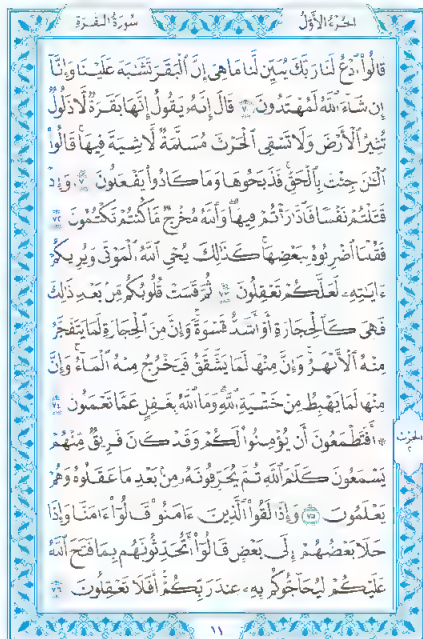 الجزء الأول سورة البقرة
قَالُوا۟ ٱدْعُ لَنَا رَبَّكَ يُبَيِّن لَّنَا مَا هِىَ إِنَّ ٱلْبَقَرَ تَشَٰبَهَ عَلَيْنَا وَإِنَّآ
إِن شَآءَ ٱللَّهُ لَمُهْتَدُونَ ٧٠ قَالَ إِنَّهُۥ يَقُولُ إِنَّهَا بَقَرَةٌ لَّا ذَلُولٌ
تُثِيرُ ٱلْأَرْضَ وَلَا تَسْقِى ٱلْحَرْثَ مُسَلَّمَةٌ لَّا شِيَةَ فِيهَا ۚ قَالُوا۟
ٱلْـَٰٔنَ جِئْتَ بِٱلْحَقِّ ۚ فَذَبَحُوهَا وَمَا كَادُوا۟ يَفْعَلُونَ ٧١ وَإِذْ
قَتَلْتُمْ نَفْسًا فَٱدَّٰرَْٰٔتُمْ فِيهَا ۖ وَٱللَّهُ مُخْرِجٌ مَّا كُنتُمْ تَكْتُمُونَ ٧٢
فَقُلْنَا ٱضْرِبُوهُ بِبَعْضِهَا ۚ كَذَٰلِكَ يُحْىِ ٱللَّهُ ٱلْمَوْتَىٰ وَيُرِيكُمْ
ءَايَٰتِهِۦ لَعَلَّكُمْ تَعْقِلُونَ ٧٣ ثُمَّ قَسَتْ قُلُوبُكُم مِّنۢ بَعْدِ ذَٰلِكَ
فَهِىَ كَٱلْحِجَارَةِ أَوْ أَشَدُّ قَسْوَةً ۚ وَإِنَّ مِنَ ٱلْحِجَارَةِ لَمَا يَتَفَجَّرُ
مِنْهُ ٱلْأَنْهَٰرُ ۚ وَإِنَّ مِنْهَا لَمَا يَشَّقَّقُ فَيَخْرُجُ مِنْهُ ٱلْمَآءُ ۚ وَإِنَّ
مِنْهَا لَمَا يَهْبِطُ مِنْ خَشْيَةِ ٱللَّهِ ۗ وَمَا ٱللَّهُ بِغَٰفِلٍ عَمَّا تَعْمَلُونَ ٧٤
۞ أَفَتَطْمَعُونَ أَن يُؤْمِنُوا۟ لَكُمْ وَقَدْ كَانَ فَرِيقٌ مِّنْهُمْ
الحزب ٢
يَسْمَعُونَ كَلَٰمَ ٱللَّهِ ثُمَّ يُحَرِّفُونَهُۥ مِنۢ بَعْدِ مَا عَقَلُوهُ وَهُمْ
يَعْلَمُونَ ٧٥ وَإِذَا لَقُوا۟ ٱلَّذِينَ ءَامَنُوا۟ قَالُوٓا۟ ءَامَنَّا وَإِذَا
خَلَا بَعْضُهُمْ إِلَىٰ بَعْضٍ قَالُوٓا۟ أَتُحَدِّثُونَهُم بِمَا فَتَحَ ٱللَّهُ
عَلَيْكُمْ لِيُحَآجُّوكُم بِهِۦ عِندَ رَبِّكُمْ ۚ أَفَلَا تَعْقِلُونَ ٧٦
١١